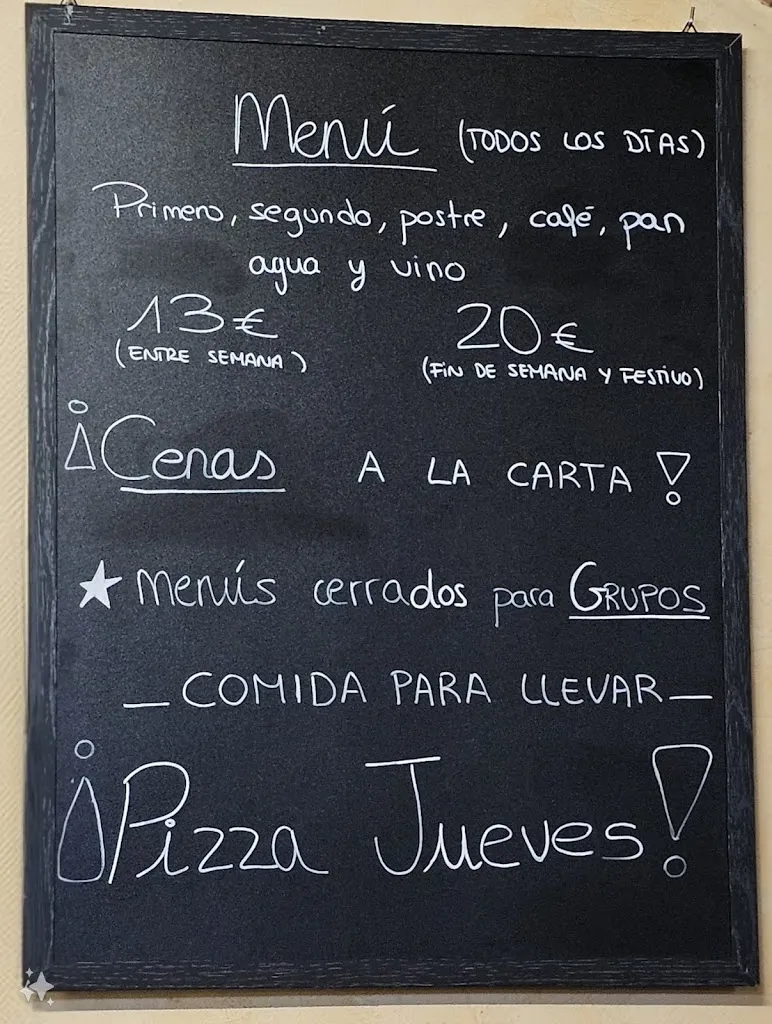 Menú (TODOS LOS DÍAS)
Primero, segundo, postre, café, pan
agua y vino
13€ 20€
(ENTRE SEMANA) (FIN DE SEMANA Y FESTIVO)
¡Cenas A LA CARTA!
★ Menús cerrados para GRUPOS
— COMIDA PARA LLEVAR —
¡Pizza Jueves!